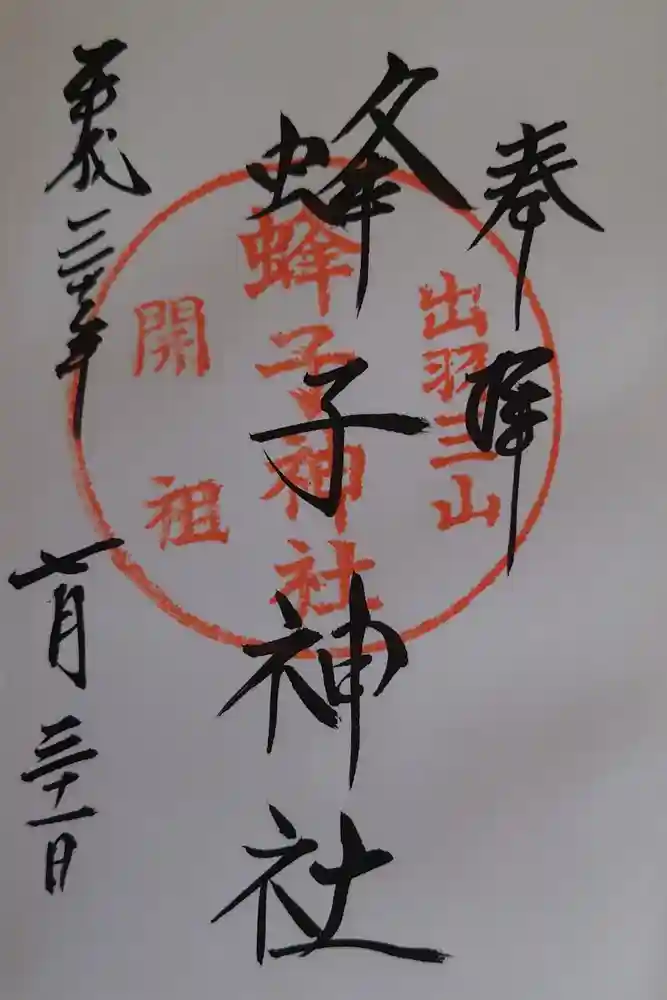 奉拝
出羽三山
蜂子神社
蜂子神社
開祖
平成 年 七月三十一日